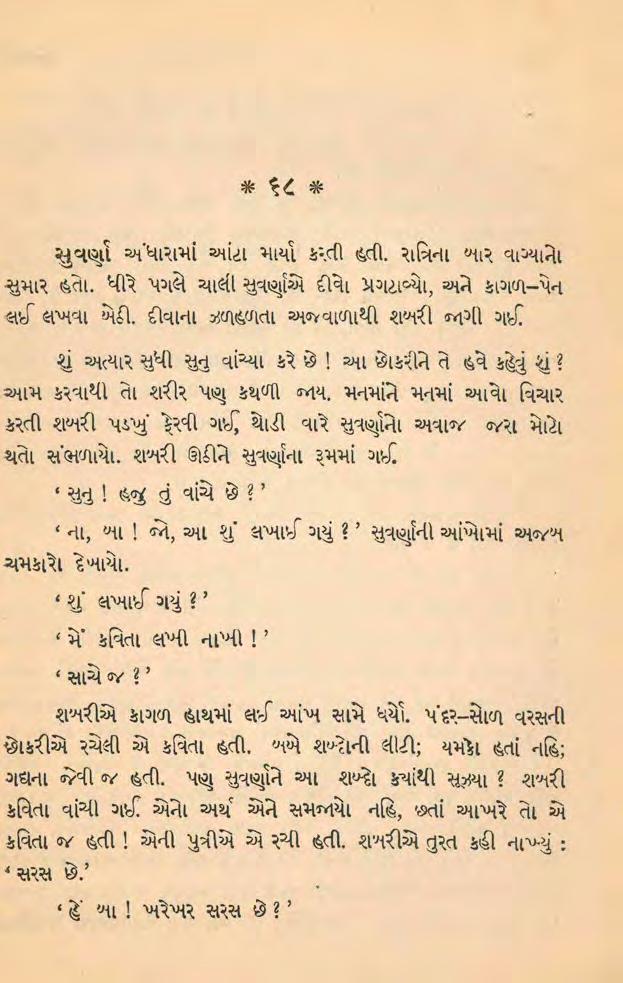 * ૬૮ *
સુવર્ણા અંધારામાં આંટા માર્યા કરતી હતી. રાત્રિના બાર વાગ્યાનો
સુમાર હતો. ધીરે પગલે ચાલી સુવર્ણાએ દીવો પ્રગટાવ્યો, અને કાગળ–પેન
લઈ લખવા બેઠી. દીવાના ઝળહળતા અજવાળાથી શબરી જાગી ગઈ.
શું અત્યાર સુધી સુનુ વાંચ્યા કરે છે ! આ છોકરીને તે હવે કહેવું શું ?
આમ કરવાથી તો શરીર પણ કથળી જાય. મનમાંને મનમાં આવો વિચાર
કરતી શબરી પડખું ફેરવી ગઈ, થોડી વારે સુવર્ણાનો અવાજ જરા મોટો
થતો સંભળાયો. શબરી ઊઠીને સુવર્ણાના રૂમમાં ગઈ.
‘ સુનુ ! હજુ તું વાંચે છે ? ’
‘ ના, બા ! જો, આ શું લખાઈ ગયું ? ’ સુવર્ણાની આંખોમાં અજબ
ચમકારો દેખાયો.
‘ શું લખાઈ ગયું ? ’
‘ મેં કવિતા લખી નાખી ! ’
‘ સાચે જ ? ’
શબરીએ કાગળ હાથમાં લઈ આંખ સામે ધર્યો. પંદર–સોળ વરસની
છોકરીએ રચેલી એ કવિતા હતી. બબે શબ્દોની લીટી; યમકો હતાં નહિ;
ગદ્યના જેવી જ હતી. પણ સુવર્ણાને આ શબ્દો ક્યાંથી સૂઝ્યા ? શબરી
કવિતા વાંચી ગઈ. એનો અર્થ એને સમજાયો નહિ, છતાં આખરે તો એ
કવિતા જ હતી ! એની પુત્રીએ એ રચી હતી. શબરીએ તુરત કહી નાખ્યું :
‘ સરસ છે.’
‘ હેં બા ! ખરેખર સરસ છે ? ’